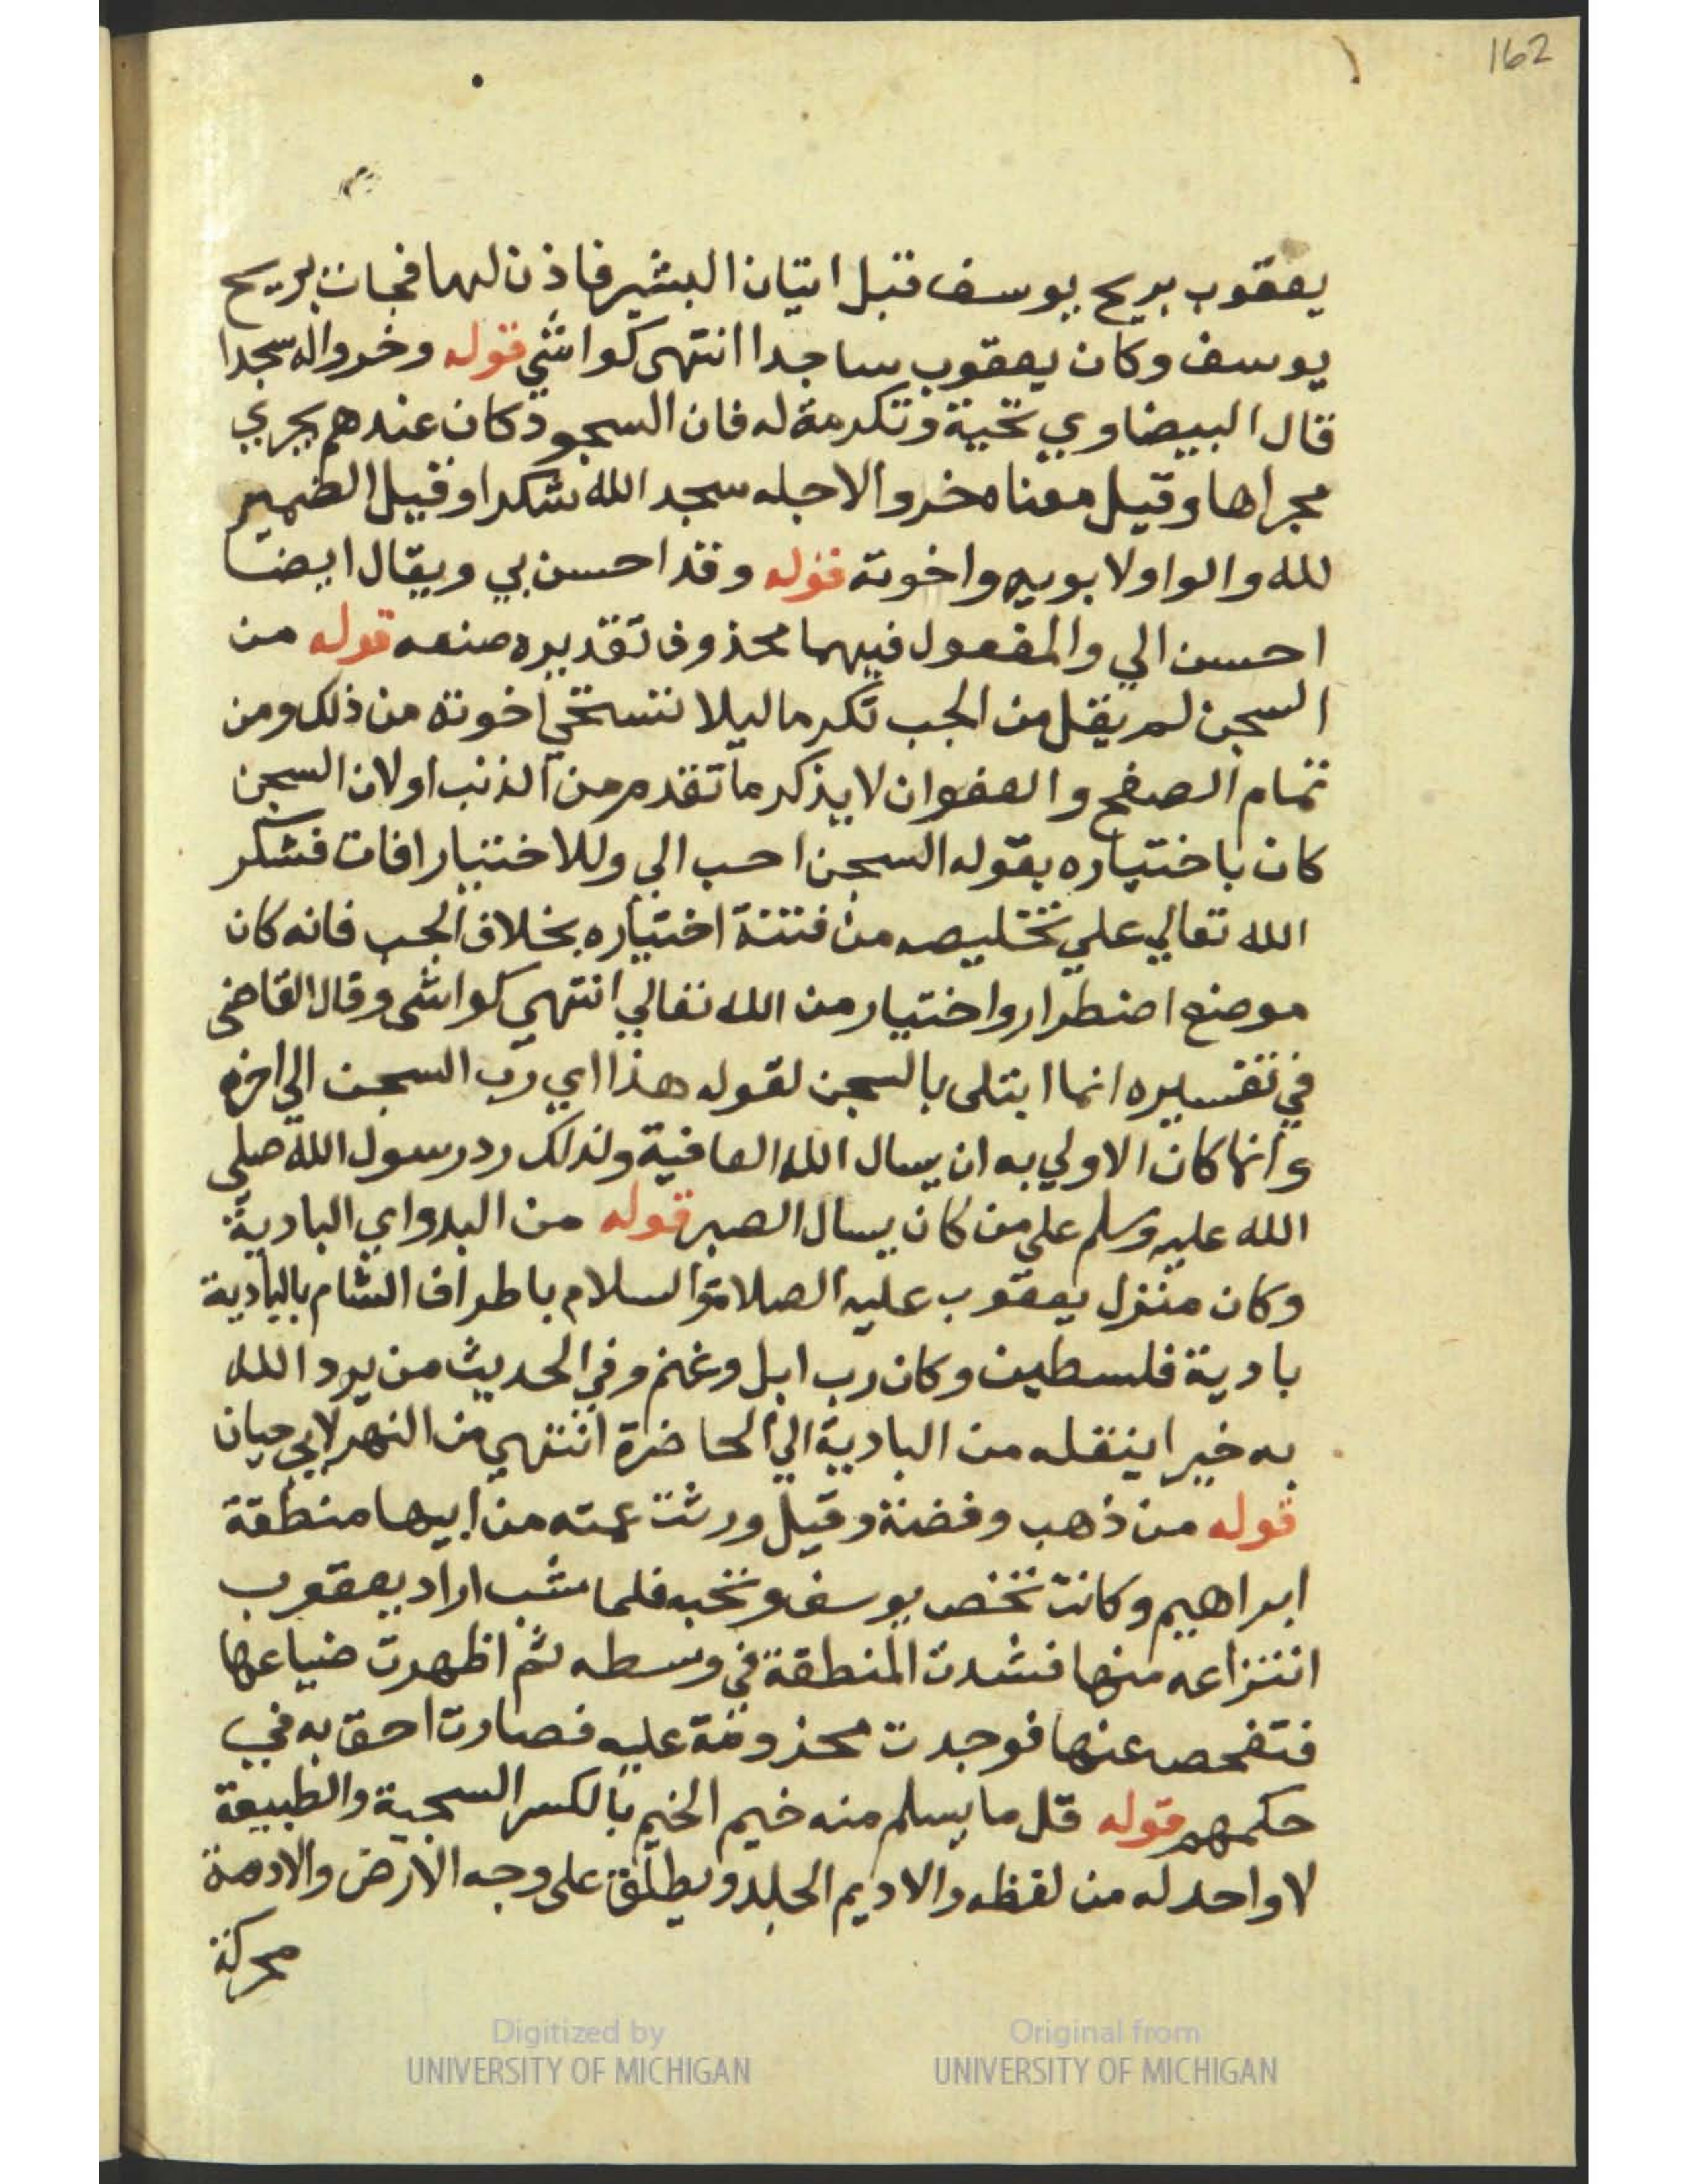 162
يعقوب بريح يوسف قبل اتيان البشير فاذن لها فجات بريح
يوسف وكان يعقوب ساجدا انتهى كواشي قوله وخروا له سجدا
قال البيضاوي تحية وتكرمة له فان السجود كان عندهم يجري
مجراها وقيل معناه خروا لاجله سجد الله شكرا وقيل الضمير
لله والواو لابويه واخوته قوله وقد احسن بي ويقال ايضا
احسن الي والمفعول فيهما محذوف تقديره صنعه قوله من
السجن لم يقل من الجب تكرما ليلا تستحي اخوته من ذلك ومن
تمام الصفح والعفو ان لا يذكر ما تقدم من الذنب او لان السجن
كان باختياره بقوله السجن احب الي وللاختيار افات فشكر
الله تعالي علي تخليصه من فتنة اختياره بخلاف الجب فانه كان
موضع اضطرار واختيار من الله تعالي انتهي كواشى وقال القاضى
في تفسيره انما ابتلى بالسجن لقوله هذا اي رب السجن الي اخره
وانما كان الاولي به ان يسال الله العافية ولذلك رد رسول الله صلي
الله عليه وسلم علي من كان يسال الصبر قوله من البدو اي البادية
وكان منزل يعقوب عليه الصلاة والسلام باطراف الشام بالبادية
بادية فلسطين وكان رب ابل وغنم وفي الحديث من يرد الله
به خيرا ينقله من البادية الي الحاضرة انتهي من النهر لابي حيان
قوله من ذهب وفضة وقيل ورثت عمته من ابيها منطقة
ابراهيم وكانت تخص يوسف وتحبه فلما شب اراد يعقوب
انتزاعه منها فشدت المنطقة في وسطه ثم اظهرت ضياعها
فتفحص عنها فوجدت محزومة عليه فصارت احق به في
حكمهم قوله قل ما يسلم منه خيم الخيم بالكسر السجية والطبيعة
لا واحد له من لفظه والاديم الجلد ويطلق على وجه الارض والادمة
محركة
Digitized by
UNIVERSITY OF MICHIGAN
Original from
UNIVERSITY OF MICHIGAN